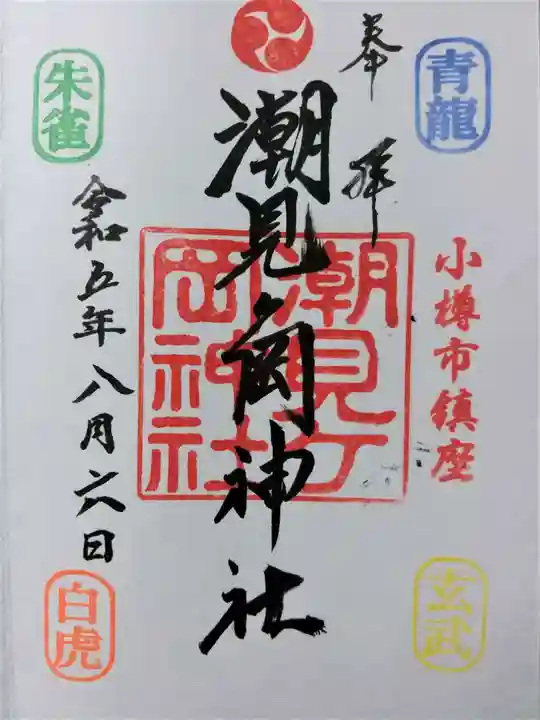 青龍
奉拝
小樽市鎮座
玄武
潮見ヶ岡神社
潮見ヶ
岡神社
朱雀
令和五年八月六日
白虎